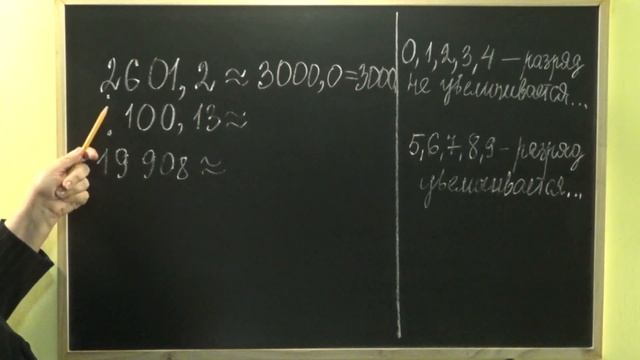 2601,2 ≈ 3000,0 = 3000
. 100,13 ≈
19 908 ≈
0, 1, 2, 3, 4 — разряд
не увеличивается...
5, 6, 7, 8, 9 - разряд
увеличивается...